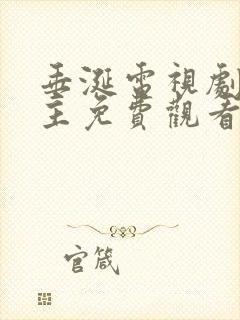 垂涎電視劇
主免費觀看
官箴